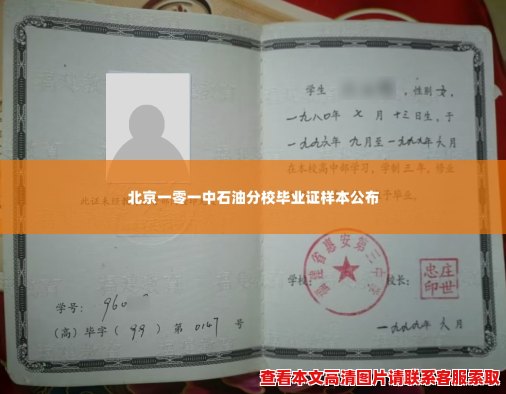 学生 ，性别女，
一九八〇年 七 月 十三日生，于
一九九六年 九月至一九九九年六月
在本校高中部学习，学制三年，修业
予毕业。
此证未经
北京一零一中石油分校毕业证样本公布
福建省惠安第三中学
学校： 校长：
庄世忠印
学号： 960
（高）毕字（ 99 ）第 0147 号
一九九九年 六 月
查看本文高清图片请联系客服索取